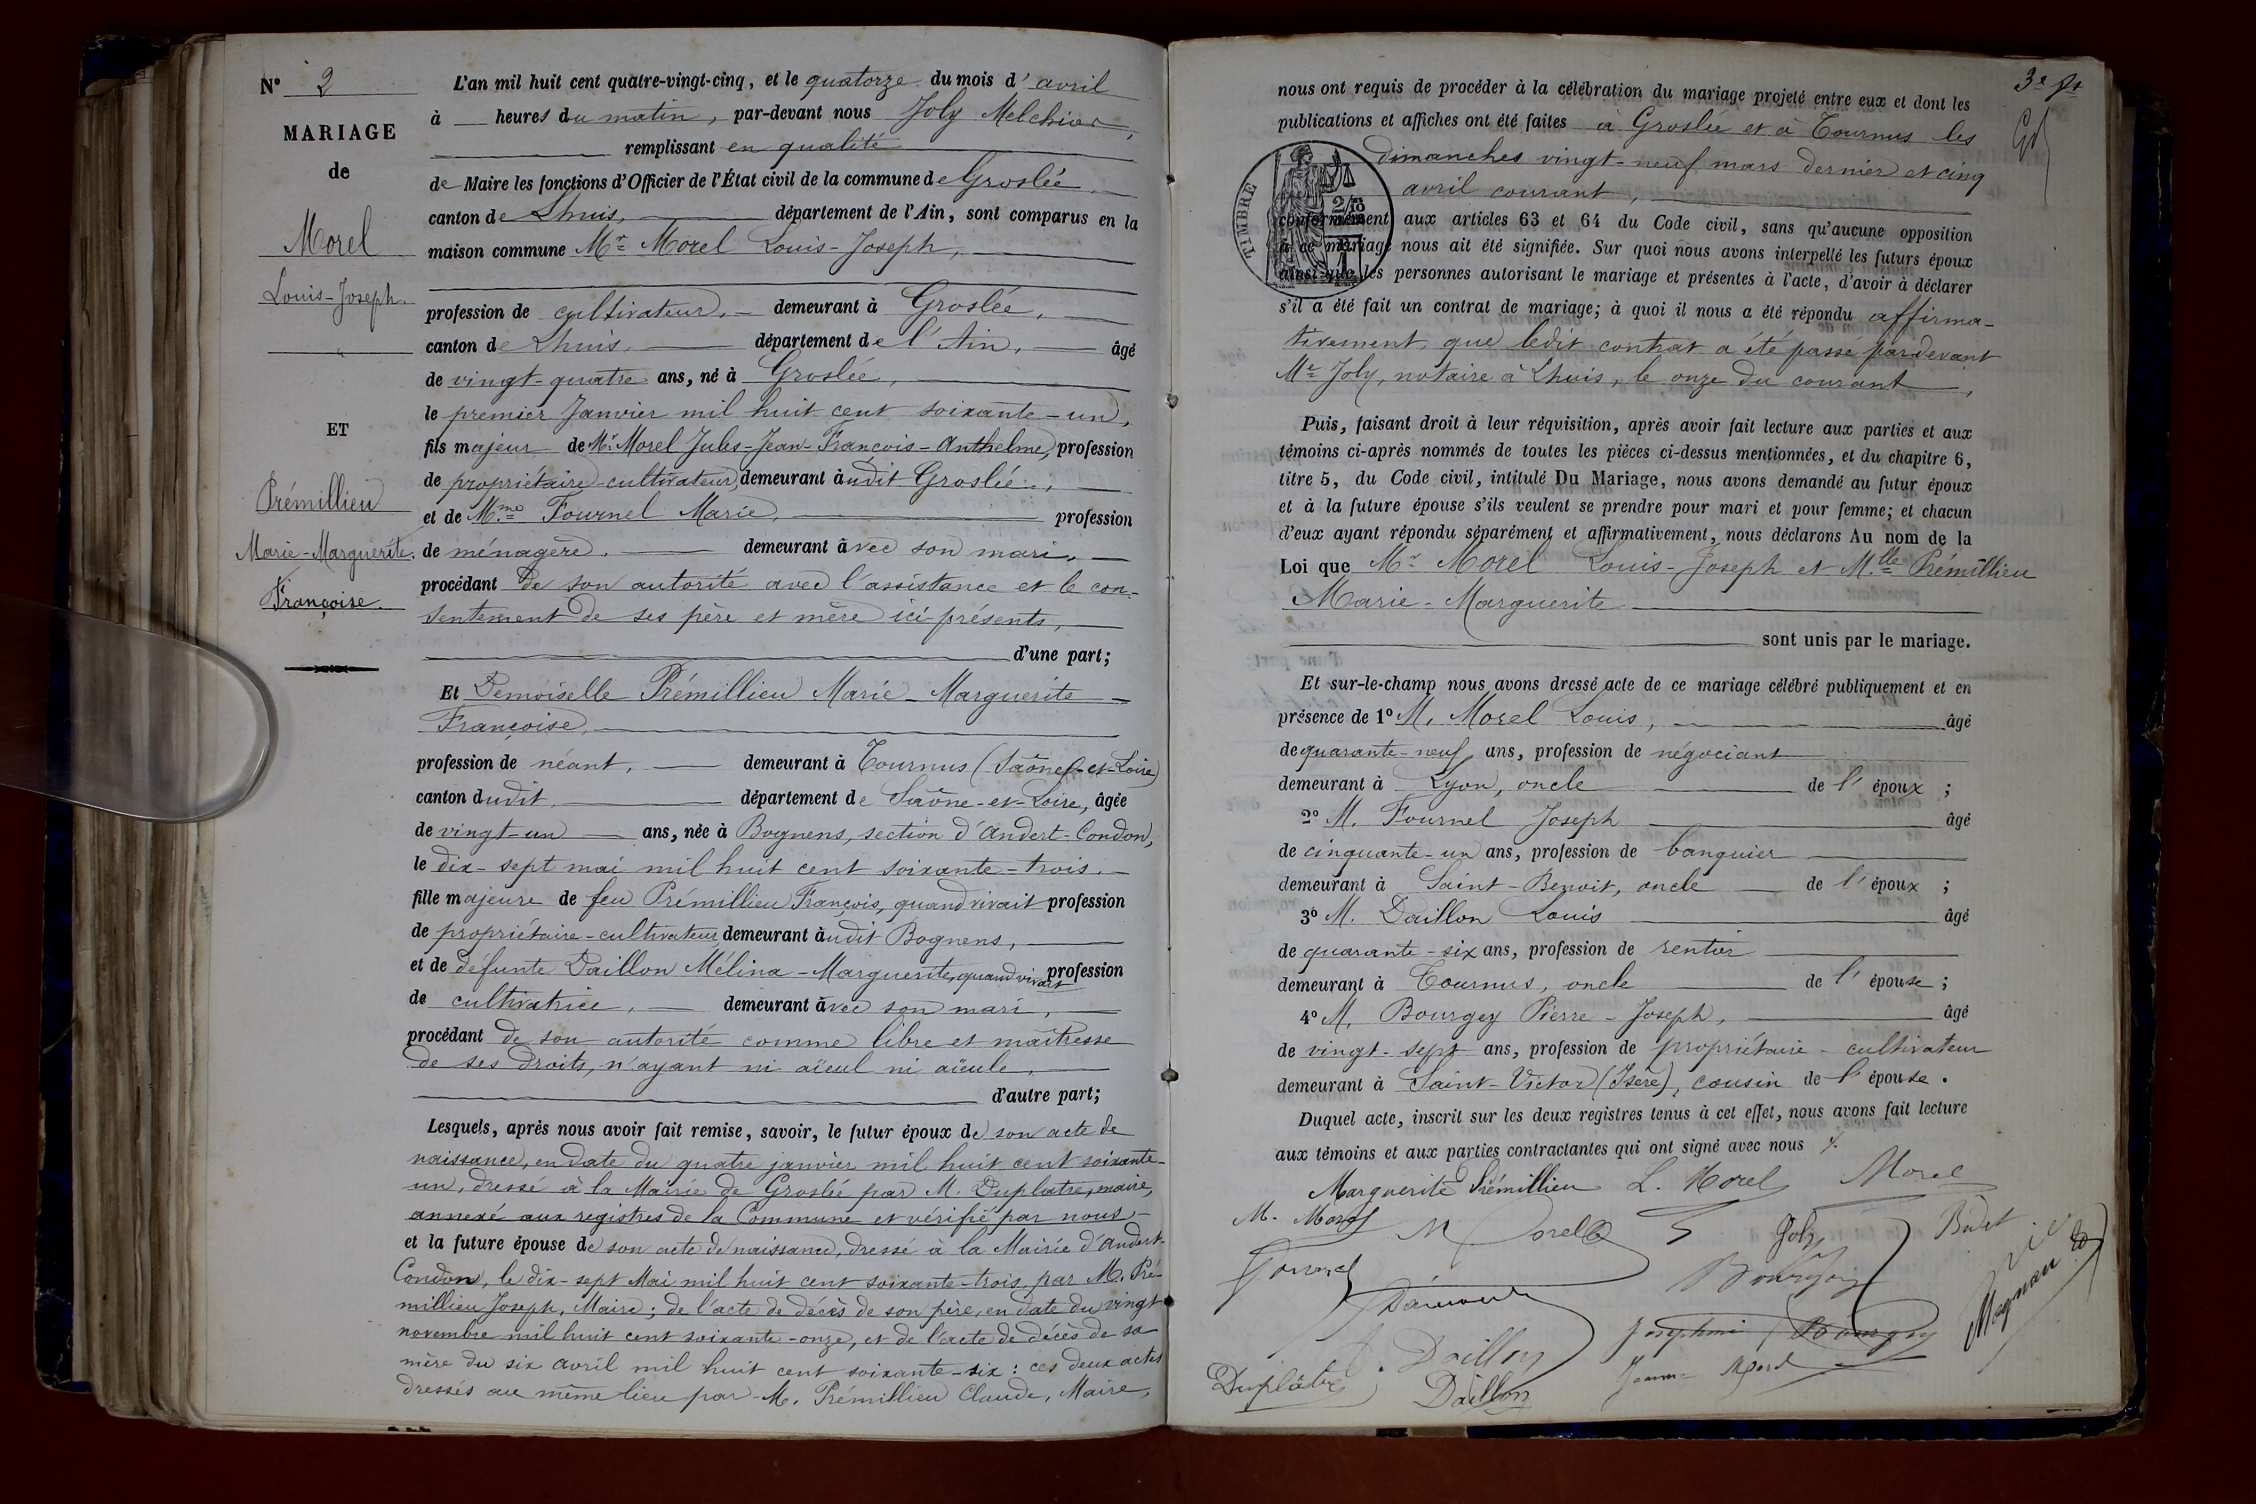 N° 2
MARIAGE
de
Morel
Louis-Joseph.
ET
Prémillieu
Marie-Marguerite.
Françoise.
L'an mil huit cent quatre-vingt-cinq, et le quatorze du mois d'avril
à heures du matin, par-devant nous Joly Melchior,
remplissant en qualité
de Maire les fonctions d'Officier de l'État civil de la commune de Groslée
canton de Lhuis, département de l'Ain, sont comparus en la
maison commune Mr Morel Louis-Joseph,
profession de cultivateur, demeurant à Groslée,
canton de Lhuis, département de l'Ain, âgé
de vingt-quatre ans, né à Groslée,
le premier Janvier mil huit cent soixante-un,
fils majeur de Mr Morel Jules-Jean-François-Anthelme, profession
de propriétaire-cultivateur, demeurant àudit Groslée,
et de Mme Fournel Marie, profession
de ménagère, demeurant àvec son mari,
procédant de son autorité avec l'assistance et le con-
sentement de ses père et mère ici présents,
d'une part;
Et Demoiselle Prémillieu Marie-Marguerite
Françoise,
profession de néant, demeurant à Tournus (Saône-et-Loire)
canton dudit département de Saône-et-Loire, âgée
de vingt-un ans, née à Bognens, section d'Andert-Condon,
le dix-sept mai mil huit cent soixante-trois.
fille majeure de feu Prémillieu François, quand vivait profession
de propriétaire-cultivateur demeurant àudit Bognens,
et de défunte Daillon Mélina-Marguerite, quand vivait profession
de cultivatrice, demeurant àvec son mari,
procédant de son autorité comme libre et maîtresse
de ses droits, n'ayant ni aïeul ni aïeule,
d'autre part;
Lesquels, après nous avoir fait remise, savoir, le futur époux de son acte de
naissance, en date du quatre janvier mil huit cent soixante-
un, dressé à la Mairie de Groslée par M. Duplatre, maire,
annexé aux registres de la Commune et vérifié par nous,
et la future épouse de son acte de naissance, dressé à la Mairie d'Andert-
Condon, le dix-sept Mai mil huit cent soixante-trois par M. Pré-
millieu Joseph, Maire; de l'acte de décès de son père, en date du vingt
novembre mil huit cent soixante-onze, et de l'acte de décès de sa
mère du six avril mil huit cent soixante-six: ces deux actes
dressés au même lieu par M. Prémillieu Claude, Maire,
3e
nous ont requis de procéder à la célébration du mariage projeté entre eux et dont les
publications et affiches ont été faites à Groslée et à Tournus les
dimanches vingt-neuf mars dernier et cinq
avril courant,
TIMBRE
conformément aux articles 63 et 64 du Code civil, sans qu'aucune opposition
à ce mariage nous ait été signifiée. Sur quoi nous avons interpellé les futurs époux
ainsi que les personnes autorisant le mariage et présentes à l'acte, d'avoir à déclarer
s'il a été fait un contrat de mariage; à quoi il nous a été répondu affirma-
tivement, que ledit contrat a été passé pardevant
Me Joly, notaire à Lhuis, le onze du courant,
Puis, faisant droit à leur réquisition, après avoir fait lecture aux parties et aux
témoins ci-après nommés de toutes les pièces ci-dessus mentionnées, et du chapitre 6,
titre 5, du Code civil, intitulé Du Mariage, nous avons demandé au futur époux
et à la future épouse s'ils veulent se prendre pour mari et pour femme; et chacun
d'eux ayant répondu séparément et affirmativement, nous déclarons Au nom de la
Loi que Mr Morel Louis-Joseph et Mlle Prémillieu
Marie-Marguerite
sont unis par le mariage.
Et sur-le-champ nous avons dressé acte de ce mariage célébré publiquement et en
présence de 1° M. Morel Louis, âgé
de quarante-neuf ans, profession de négociant
demeurant à Lyon, oncle de l'époux;
2° M. Fournel Joseph âgé
de cinquante-un ans, profession de banquier
demeurant à Saint-Benoit, oncle de l'époux;
3° M. Daillon Louis âgé
de quarante-six ans, profession de rentier
demeurant à Tournus, oncle de l'épouse;
4° M. Bourgey Pierre-Joseph, âgé
de vingt-sept ans, profession de propriétaire-cultivateur
demeurant à Saint-Victor (Isère), cousin de l'épouse.
Duquel acte, inscrit sur les deux registres tenus à cet effet, nous avons fait lecture
aux témoins et aux parties contractantes qui ont signé avec nous
Marguerite Prémillieu L. Morel Morel
M. Morel M Morel Joly
Daillon
Duplâtre Daillon
Magnan